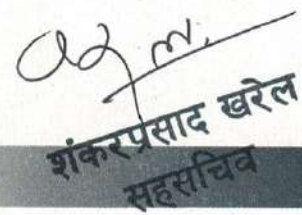 शंकरप्रसाद खरेल
सहसचिव